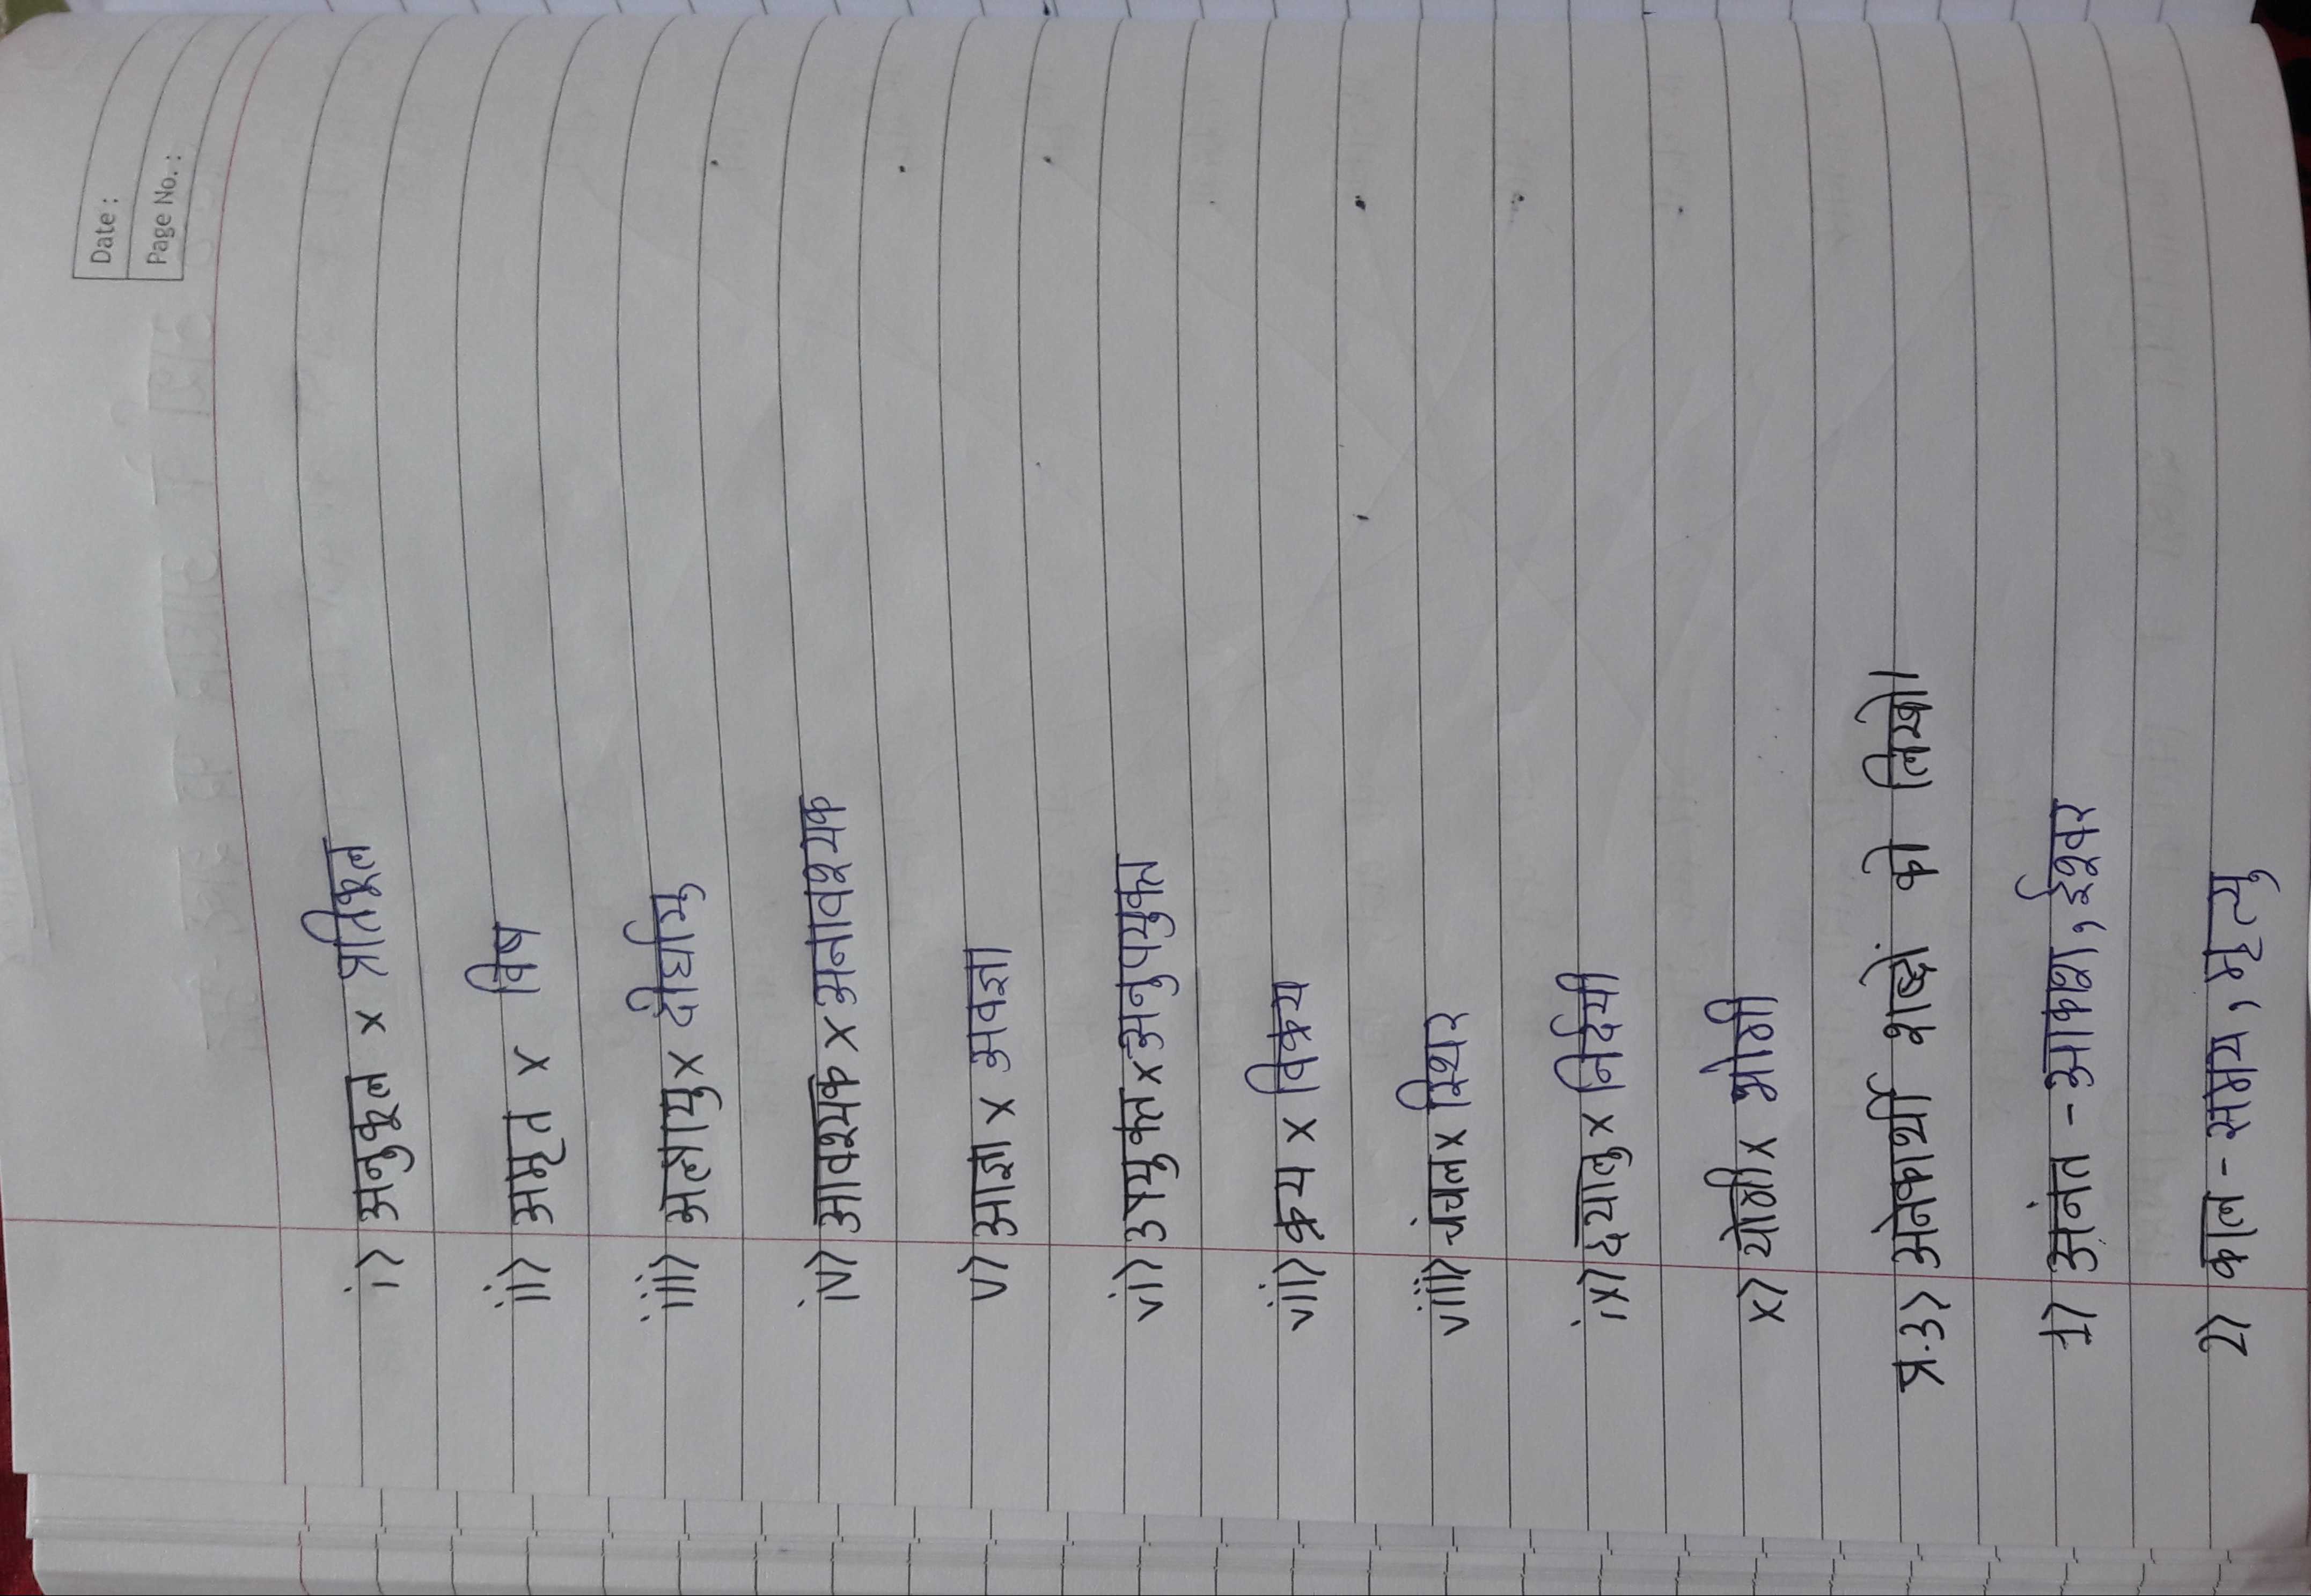 Date :
Page No. :
i) अनुकूल x प्रतिकूल
ii) अमृत x विष
iii) अल्पायु x दीर्घायु
iv) आवश्यक x अनावश्यक
v) आज्ञा x अवज्ञा
vi) उपयुक्त x अनुपयुक्त
vii) क्रय x विक्रय
viii) चंचल x स्थिर
ix) दयालु x निर्दयी
x) योगी x भोगी
प्र.3) अनेकार्थी शब्दों को लिखो।
1) अनंत - आकाश , ईश्वर
2) काल - समय , मृत्यु